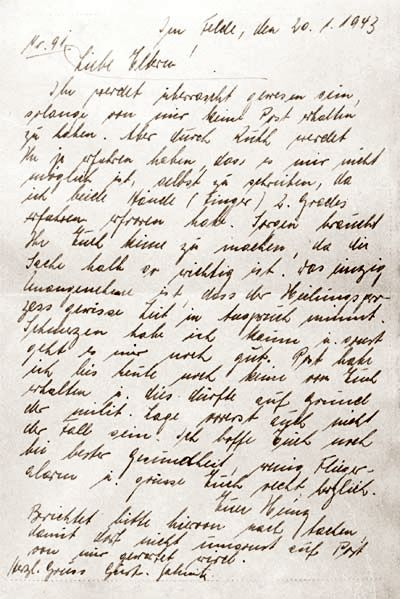 Im Felde, den 20.1.1943
Nr. 91.
Liebe Eltern!
Ihr werdet überrascht gewesen sein,
solange von mir keine Post erhalten
zu haben. Aber durch Ruth werdet
Ihr ja erfahren haben, dass es mir nicht
möglich ist, selbst zu schreiben, da
ich beide Hände (Finger) 2. Grades
erfahren erfroren habe. Sorgen braucht
Ihr Euch keine zu machen, da die
Sache halb so wichtig ist! Das einzig
Unangenehme ist, dass der Heilungspro-
zess gewisse Zeit in Anspruch nimmt.
Schmerzen habe ich kaum u. sonst
geht es mir noch gut. Post habe
ich bis heute noch keine von Euch
erhalten u. dies dürfte auf Grund
der milit. Lage vorerst auch nicht
der Fall sein. Ich hoffe Euch noch
bei bester Gesundheit, wenig Flieger-
alarm u. grüsse Euch recht herzlich.
Euer Heinz
Berichtet bitte hiervon nach Aachen,
damit dort nicht umsonst auf Post
von mir gewartet wird.
Herzl. Gruss